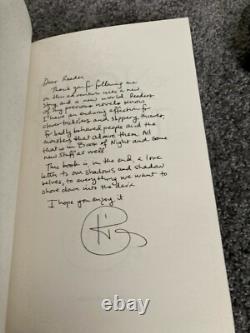 Dear Reader
Thank you for following me
on this adventure into a new
story and a new world. Readers
of my previous novels know
I have an enduring affection for
clever tricksters and slippery thieves,
for badly behaved people and the
monsters that adore them. All
that is in Book of Night and some
new stuff as well
This book is, in the end, a love
letter to our shadows and shadow
selves, to everything we want to
shove down into the dark
I hope you enjoy it